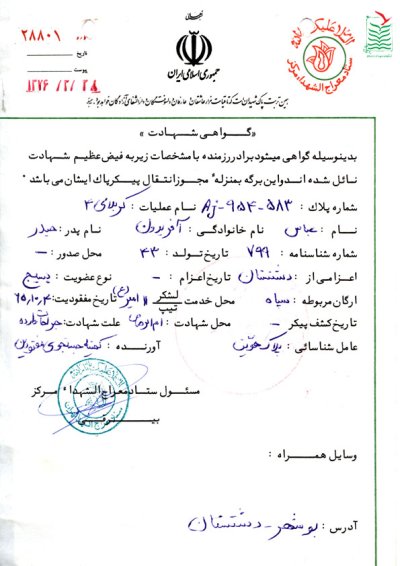 ۲۸۸۰۱
تاریخ
پیوست
۱۳۷۶/۲/۲۸
جمهوری اسلامی ایران
السلام علیک یا ثارالله
ستاد معراج الشهداء مرکز
«گواهی شهادت»
بدینوسیله گواهی میشود برادر رزمنده با مشخصات زیر به فیض عظیم شهادت
نائل شده اند و این برگه بمنزله مجوز انتقال پیکر پاک ایشان می باشد
شماره پلاک : AJ-954-583 نام عملیات : کربلای ۴
نام : عباس نام خانوادگی : آفریدون نام پدر : حیدر
شماره شناسنامه : ۷۹۹ تاریخ تولد : ۴۳ محل صدور : –
اعزامی از : دشتستان تاریخ اعزام : – نوع عضویت : بسیج
ارگان مربوطه : سپاه محل خدمت لشکر تیپ ۱۱ امیر(ع) تاریخ مفقودیت : ۶۵،۱۰،۴
تاریخ کشف پیکر – محل شهادت : ام الرصاص علت شهادت : جراحات وارده
عامل شناسائی : پلاک هویت آورنده : کمیته جستجوی مفقودین
مسئول ستاد معراج الشهداء مرکز
بیرقی
وسایل همراه :
آدرس : بوشهر – دشتستان